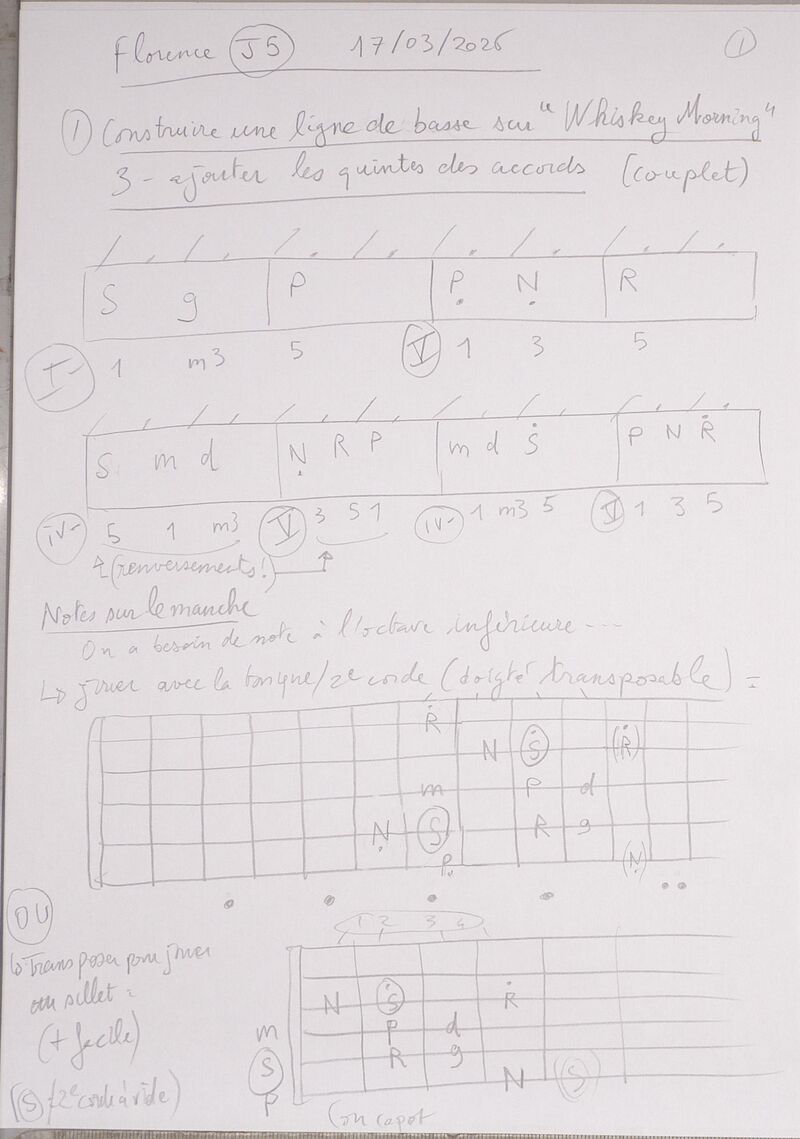 Florence J5 17/03/2026 1
1 Construire une ligne de basse sur "Whiskey Morning"
3 - ajouter les quintes des accords (couplet)
S g P P N R
I- 1 m3 5 V 1 3 5
S m d N R P m d S P N R
iv- 5 1 m3 V 3 5 1 iv- 1 m3 5 V 1 3 5
(renversements!)
Notes sur le manche
On a besoin de note à l'octave inférieure ---
↳ jouer avec la tonique/2e corde (doigté transposable) =
R
N S (R)
m P d
N S R g
P (N)
OU
1 2 3 4
↳ Transposer pour jouer
au sillet :
(+ facile)
N S R
m P d
S R g
P N S
(S = 2e corde à vide)
(ou capot